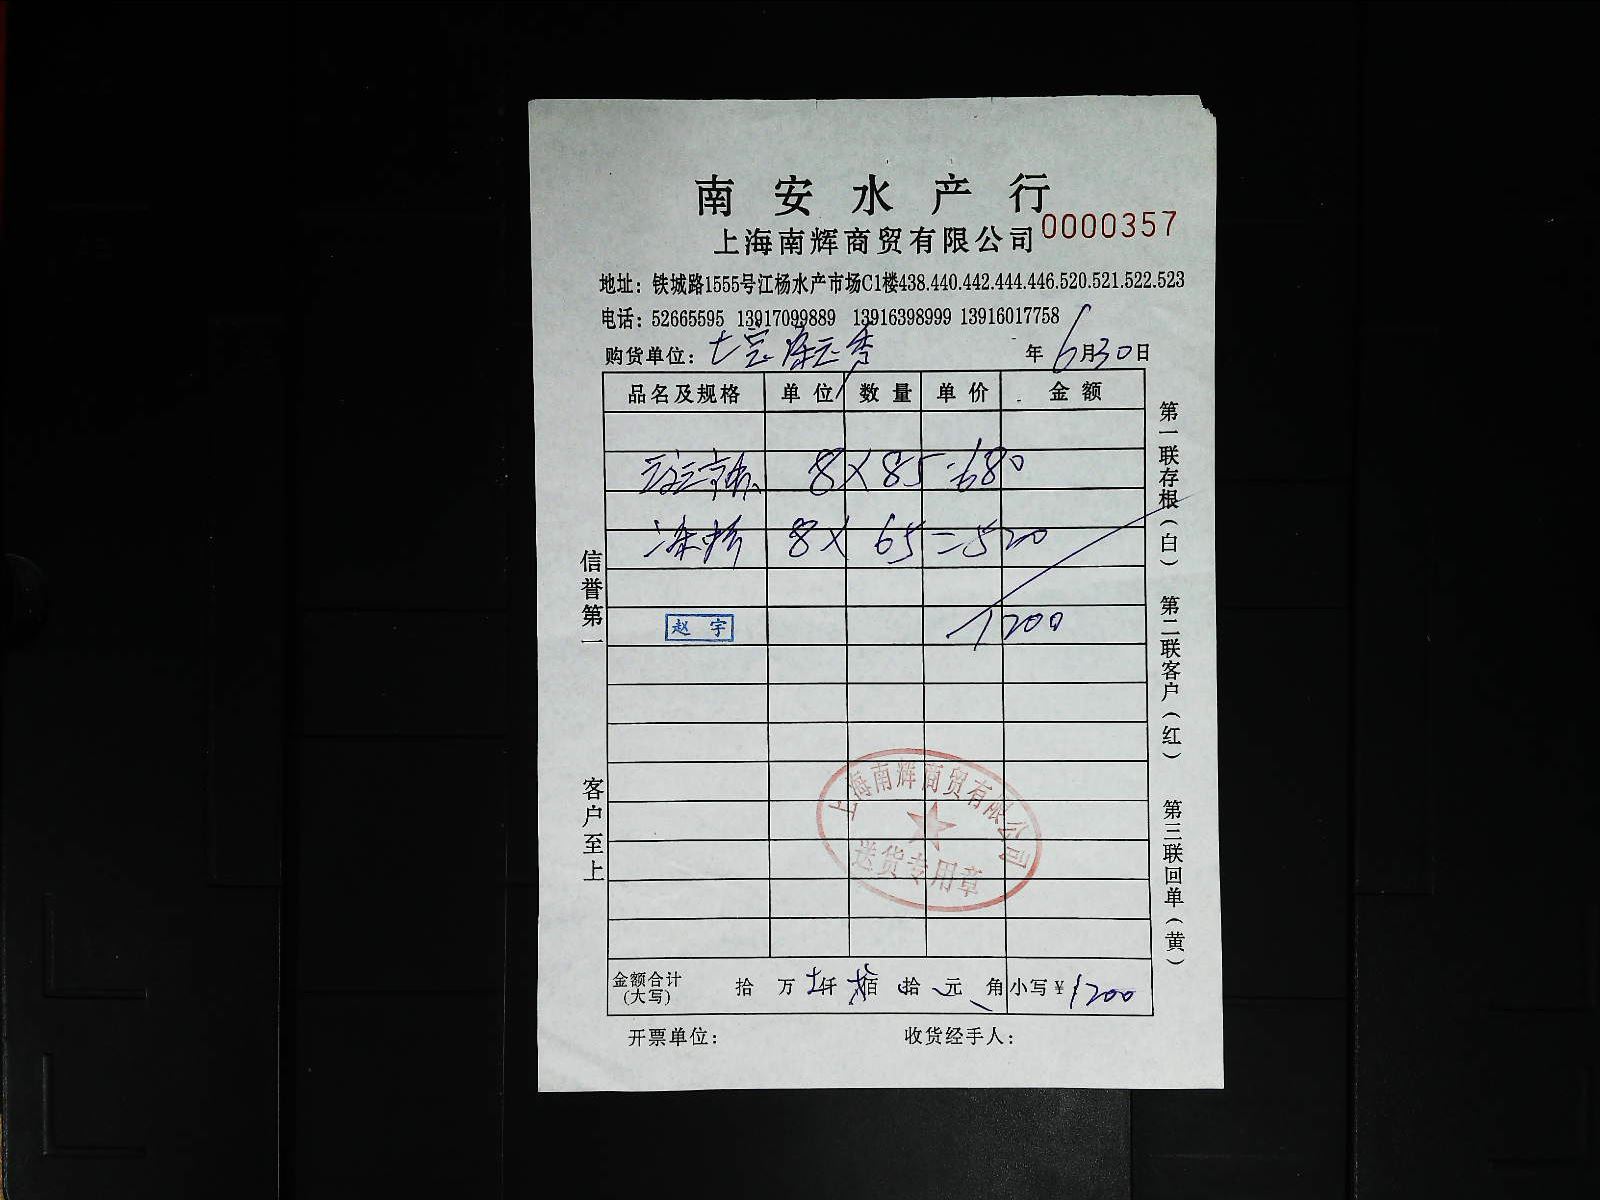 南安水产行
上海南辉商贸有限公司 0000357
地址：铁城路1555号江杨水产市场C1楼438.440.442.444.446.520.521.522.523
电话：52665595 13917099889 13916398999 13916017758
购货单位：七宝 年6月30日
品名及规格 单位 数量 单价 金额
8×85=680
8×65=520
赵宇 1200
上海南辉商贸有限公司
送货专用章
金额合计（大写） 拾 万 仟 佰 拾 元 角 小写￥：1200
开票单位： 收货经手人：
信誉第一
客户至上
第一联存根（白） 第二联客户（红） 第三联回单（黄）